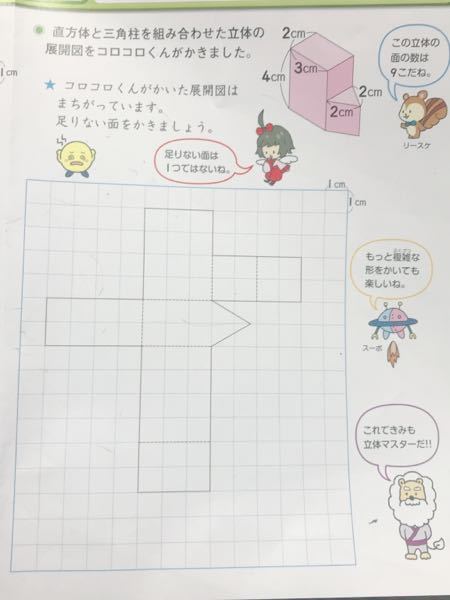 直方体と三角柱を組み合わせた立体の
展開図をコロコロくんがかきました。
★ コロコロくんがかいた展開図は
まちがっています。
足りない面をかきましょう。
2cm
3cm
4cm
2cm
2cm
この立体の
面の数は
9こだね。
リースケ
足りない面は
1つではないね。
1cm
1cm
1cm
もっと複雑な
形をかいても
楽しいね。
スーポ
これできみも
立体マスターだ!!